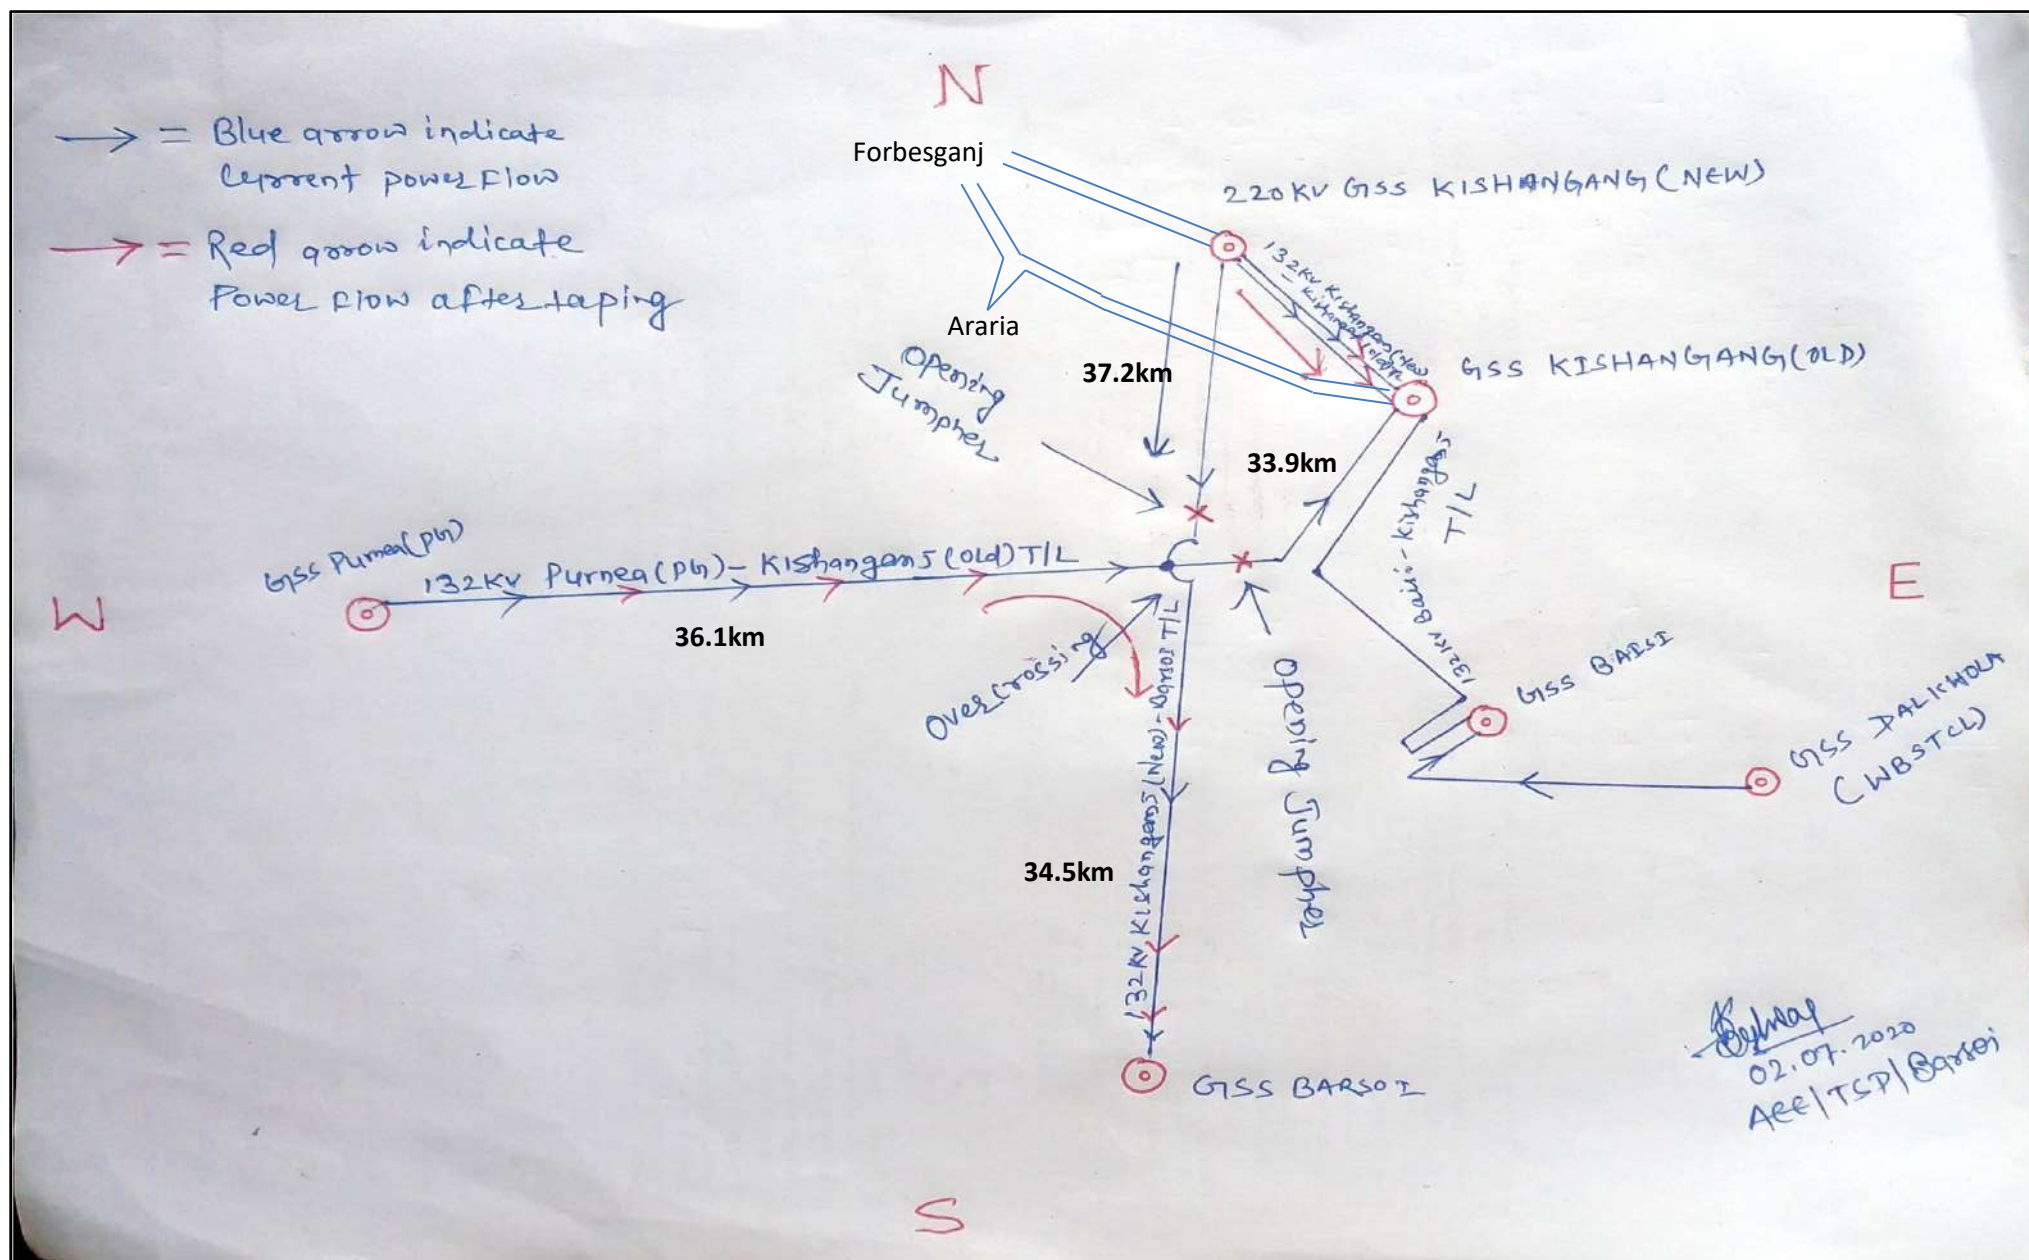 N
= Blue arrow indicate
Current power flow
= Red arrow indicate
Power flow after taping
Forbesganj
Araria
220KV GSS KISHANGANG (NEW)
132KV Kishanganj (New)
GSS KISHANGANG (OLD)
37.2km
Opening
Jumpher
33.9km
132KV Baisi - Kishanganj
T/L
GSS Purnea(PG)
132KV Purnea(PG) - Kishanganj (Old) T/L
W
E
36.1km
Over Crossing
Opening Jumpher
132KV Kishanganj (New) - Barsoi T/L
GSS BAISI
GSS DALKHOLA
(WBSTCL)
34.5km
GSS BARSOI
02.07.2020
AEE/TSD/Barsoi
S